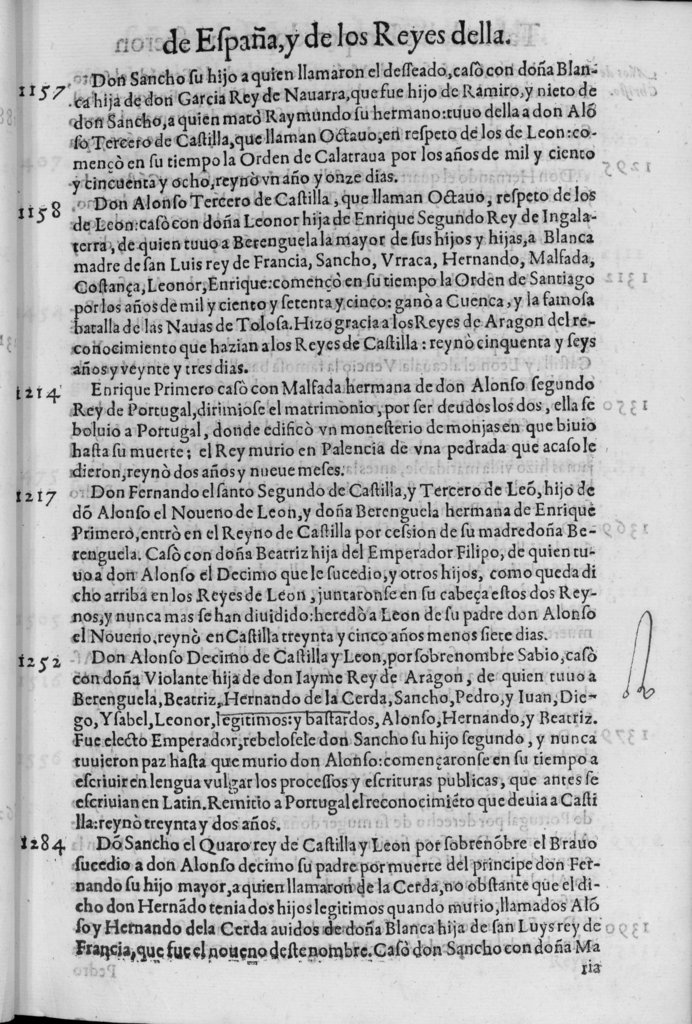 de España, y de los Reyes della.
1157 Don Sancho su hijo a quien llamaron el desseado, casò con doña Blan-
ca hija de don Garcia Rey de Nauarra, que fue hijo de Ramiro, y nieto de
don Sancho, a quien matò Raymundo su hermano: tuuo della a don Alõ
so Tercero de Castilla, que llaman Octauo, en respeto de los de Leon: co-
mençò en su tiempo la Orden de Calatraua por los años de mil y ciento
y cincuenta y ocho, reynò vn año y onze dias.
1158 Don Alonso Tercero de Castilla, que llaman Octauo, respeto de los
de Leon: casò con doña Leonor hija de Enrique Segundo Rey de Ingala-
terra, de quien tuuo a Berenguela la mayor de sus hijos y hijas, a Blanca
madre de san Luis rey de Francia, Sancho, Vrraca, Hernando, Malfada,
Costança, Leonor, Enrique: començò en su tiempo la Orden de Santiago
por los años de mil y ciento y setenta y cinco: ganò a Cuenca, y la famosa
batalla de las Nauas de Tolosa. Hizo gracia a los Reyes de Aragon del re-
conocimiento que hazian a los Reyes de Castilla: reynò cinquenta y seys
años y veynte y tres dias.
1214 Enrique Primero casò con Malfada hermana de don Alonso segundo
Rey de Portugal, dirimiose el matrimonio, por ser deudos los dos, ella se
boluio a Portugal, donde edificò vn monesterio de monjas en que biuio
hasta su muerte; el Rey murio en Palencia de vna pedrada que acaso le
dieron, reynò dos años y nueue meses.
1217 Don Fernando el santo Segundo de Castilla, y Tercero de Leõ, hijo de
dõ Alonso el Noueno de Leon, y doña Berenguela hermana de Enrique
Primero, entrò en el Reyno de Castilla por cession de su madre doña Be-
renguela. Casò con doña Beatriz hija del Emperador Filipo, de quien tu-
uo a don Alonso el Decimo que le sucedio, y otros hijos, como queda di
cho arriba en los Reyes de Leon, juntaronse en su cabeça estos dos Rey-
nos, y nunca mas se han diuidido: heredò a Leon de su padre don Alonso
el Noueno, reynò en Castilla treynta y cinco años menos siete dias.
1252 Don Alonso Decimo de Castilla y Leon, por sobrenombre Sabio, casò
con doña Violante hija de don Iayme Rey de Aragon, de quien tuuo a
Berenguela, Beatriz, Hernando de la Cerda, Sancho, Pedro, y Iuan, Die-
go, Ysabel, Leonor, legitimos: y bastardos, Alonso, Hernando, y Beatriz.
Fue electo Emperador, rebelosele don Sancho su hijo segundo, y nunca
tuuieron paz hasta que murio don Alonso: començaronse en su tiempo a
escriuir en lengua vulgar los processos y escrituras publicas, que antes se
escriuian en Latin. Remitio a Portugal el reconocimiẽto que deuia a Casti
lla: reynò treynta y dos años.
1284 Dõ Sancho el Quaro rey de Castilla y Leon por sobrenõbre el Brauo
sucedio a don Alonso decimo su padre por muerte del principe don Fer-
nando su hijo mayor, a quien llamaron de la Cerda, no obstante que el di-
cho don Hernãdo tenia dos hijos legitimos quando murio, llamados Alõ
so y Hernando de la Cerda auidos de doña Blanca hija de san Luys rey de
Francia, que fue el noueno deste nombre. Casò don Sancho con doña Ma
ria